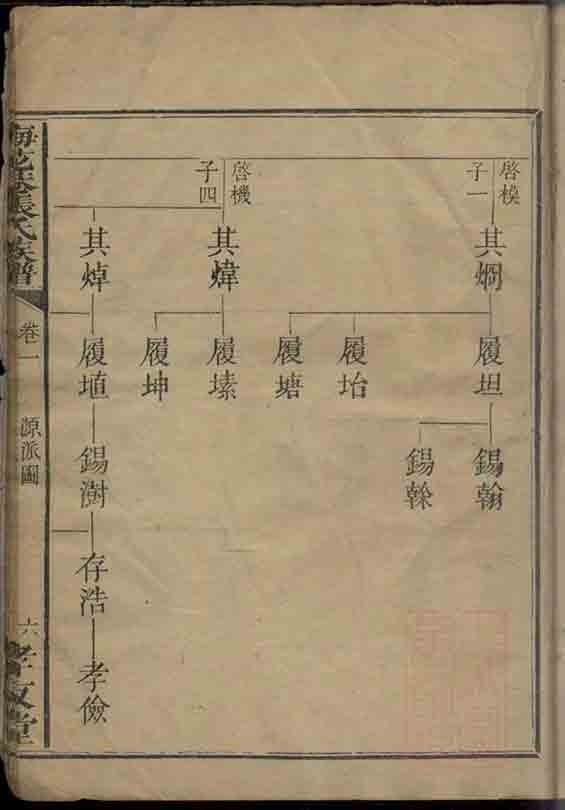 啓模
子一
其炯
履坦
錫翰
錫榦
履坮
履塘
啓機
子四
其煒
履塐
履坤
其焯
履埴
錫澍
存浩
孝儉
張氏族譜
卷一
源派圖
六
孝友堂